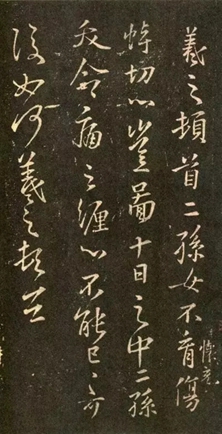 羲之頓首二孫女不育傷
懷充
悼切心豈圖十日之中二孫
夭命痛之纏心不能已已可
復如何羲之頓首